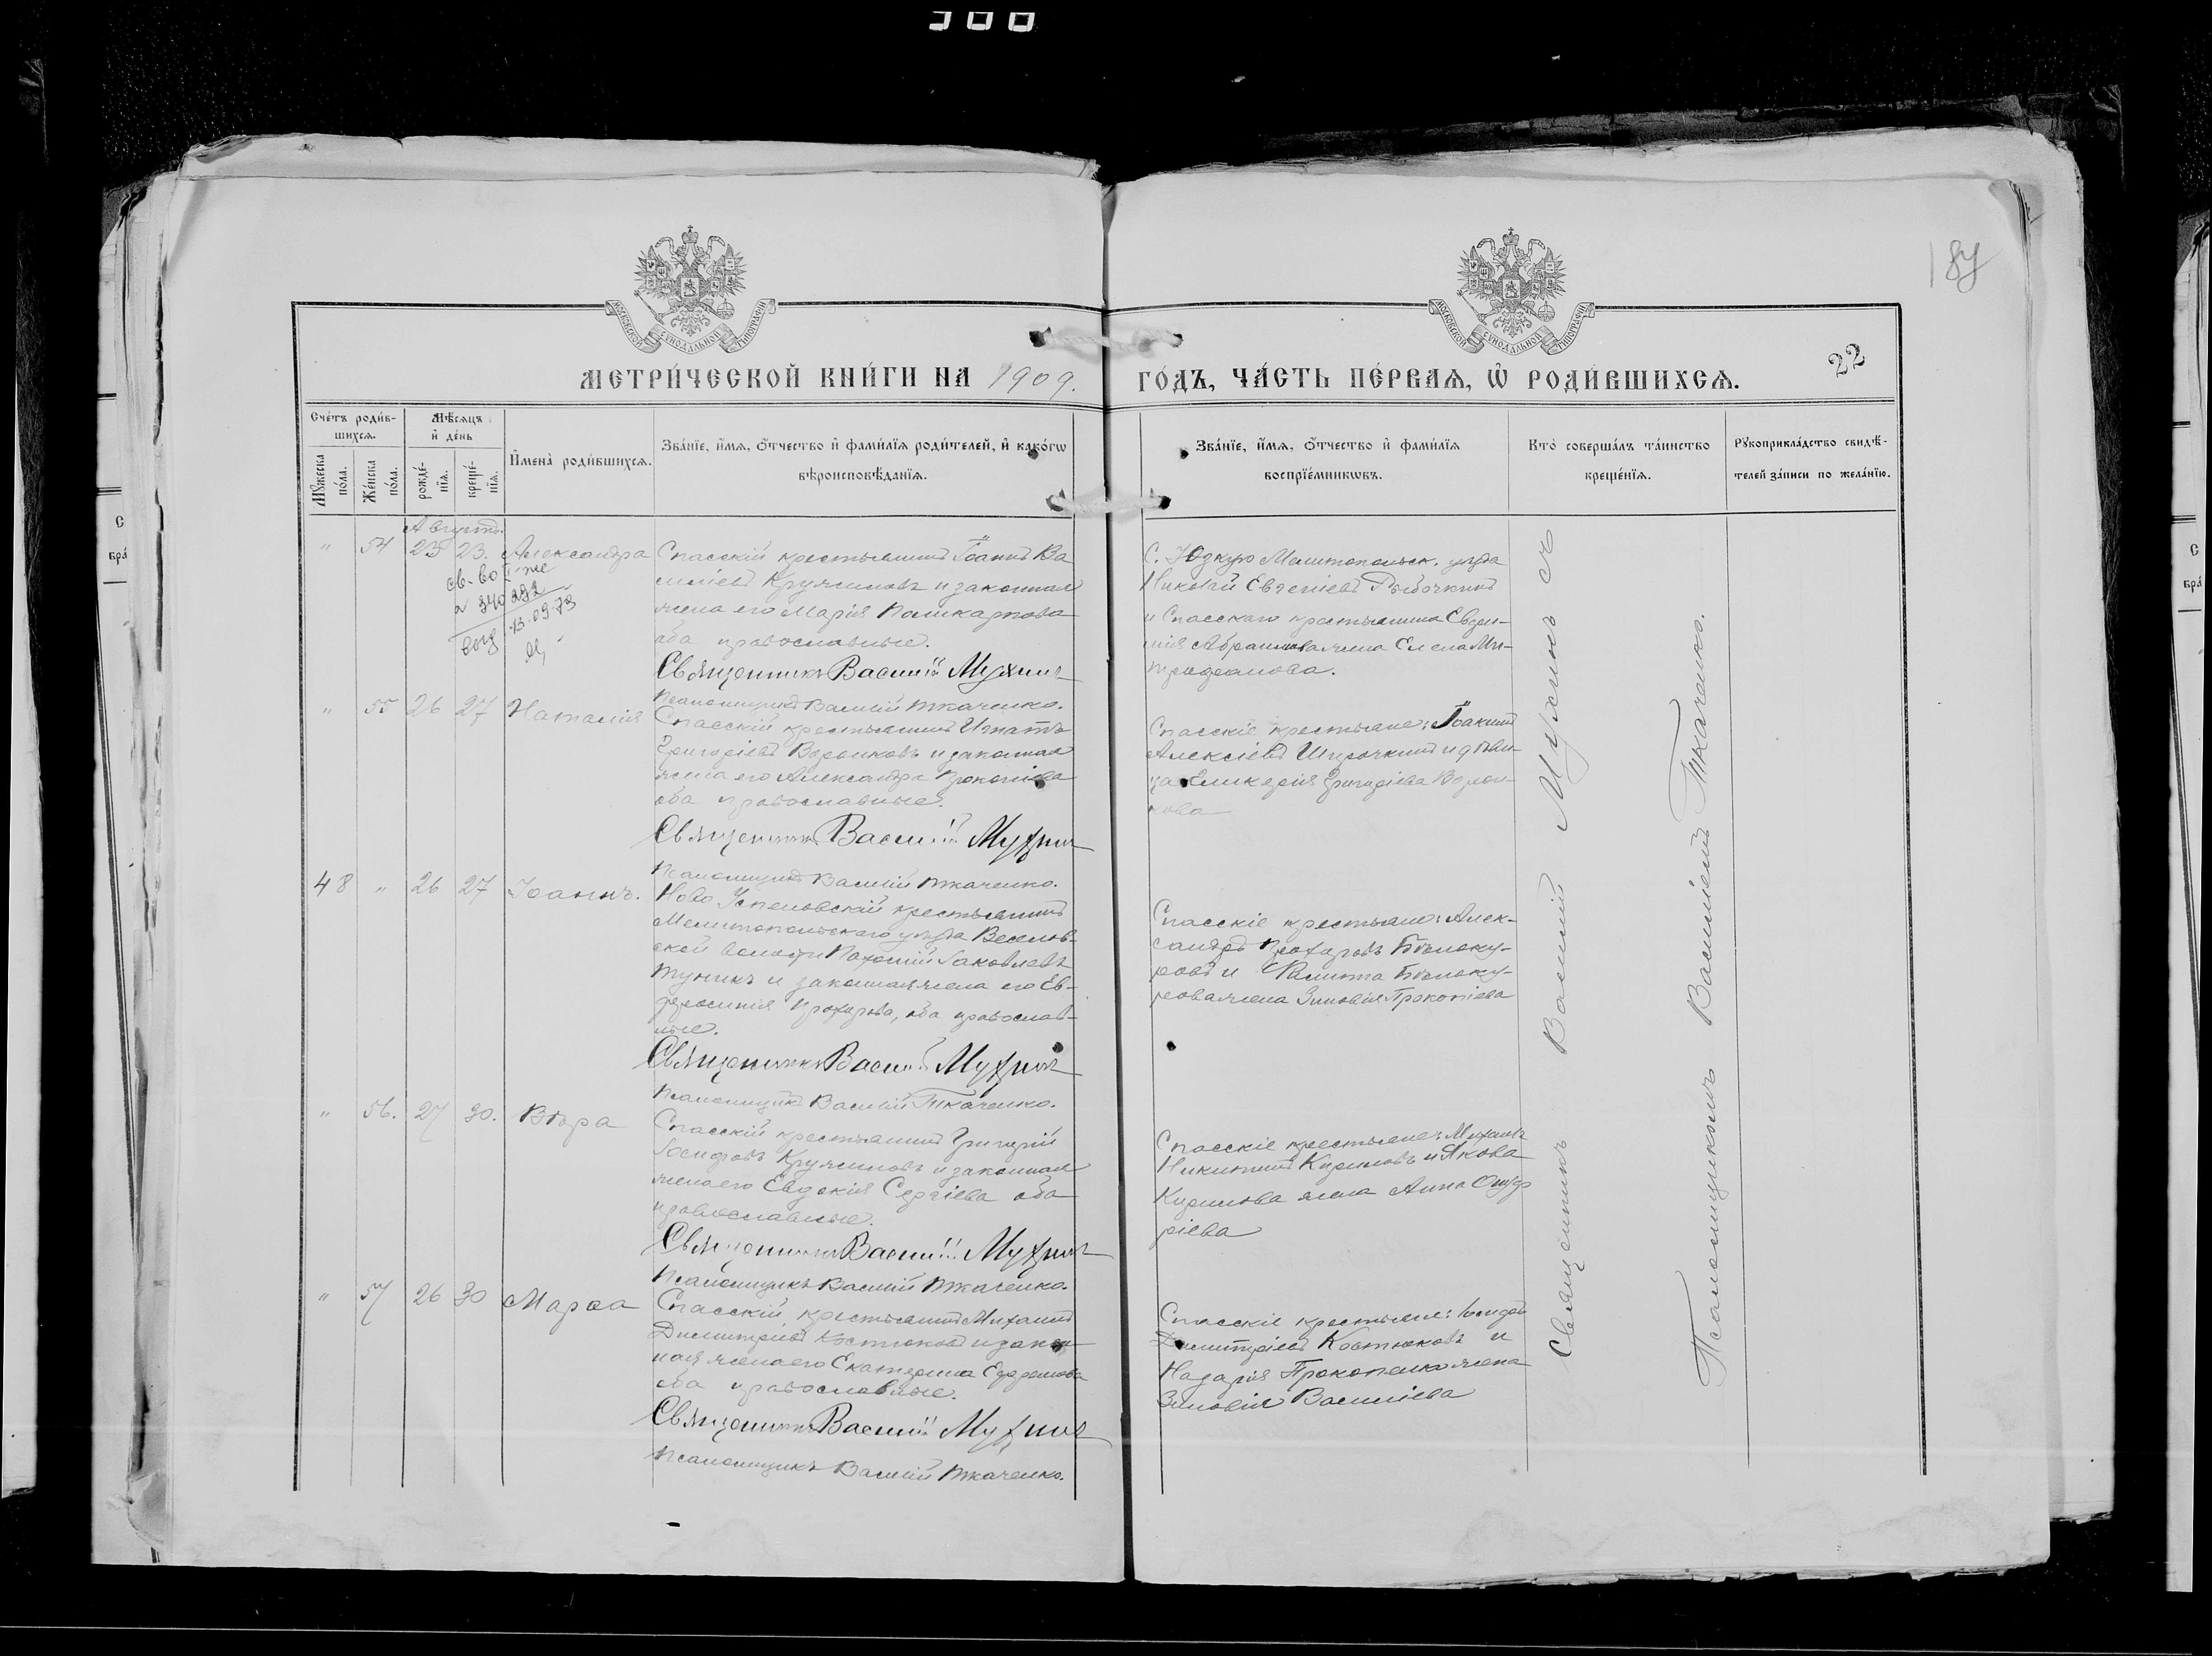 МЕТРИ́ЧЕСКОЙ КНИ́ГИ НА 1909.
ГО́ДЪ, ЧА́СТЬ ПЕ́РВАѦ, Ѡ҆ РОДИ́ВШИХСѦ.
22
МОСКОВСКОЙ СѴНОДАЛЬНОЙ ТИПОГРАФІИ
МОСКОВСКОЙ СѴНОДАЛЬНОЙ ТИПОГРАФІИ
Сче́тъ роди́в-
шихсѧ.
Мꙋ́жеска
по́ла.
Же́нска
по́ла.
Мѣ́сѧцъ
и҆ де́нь
рожде́-
нїѧ.
креще́-
нїѧ.
И҆мена̀ роди́вшихсѧ.
Зва́нїе, и҆́мѧ, ѻ҆́тчество и҆ фами́лїѧ роди́телей, и҆ како́гѡ
вѣроисповѣ́данїѧ.
Зва́нїе, и҆́мѧ, ѻ҆́тчество и҆ фами́лїѧ
воспрїе́мникѡвъ.
Кто̀ соверша́лъ та́инство
креще́нїѧ.
Рꙋкоприкла́дство свидѣ́-
телей за́писи по жела́нїю.
Августъ.
" 54 23 23. Александра
Спасскій крестьянинъ Іоаннъ Ва
силіевъ Кружиловъ и законная
жена его Марія Поликарпова
оба православные.
Священникъ Василій Мухинъ
Псаломщикъ Василій Ткаченко.
С. Мелитопольск. уѣзда
Николай Евгеніевъ Рыбочкинъ
и Спасскаго крестьянина Евге-
нія Абрамова жена Елена Ми-
трофанова.
" 55 26 27 Наталія
Спасскій крестьянинъ Игнатъ
Григоріевъ Воронковъ и законная
жена его Александра Прокопіева
оба православные.
Священникъ Василій Мухинъ
Псаломщикъ Василій Ткаченко.
Спасскіе крестьяне: Іоакимъ
Алексіевъ Широчкинъ и дѣви-
ца Гликерія Григоріева Ворон-
кова
48 " 26 27 Іоаннъ.
Ново Успеновскій крестьянинъ
Мелитопольскаго уѣзда Веселов-
ской волости Пахомій Іаковлевъ
Туникъ и законная жена его Ев-
фросинія Прохорова, оба православ-
ные.
Священникъ Василій Мухинъ
Псаломщикъ Василій Ткаченко.
Спасскіе крестьяне: Алек-
сандръ Прохоровъ Бѣлоку-
ровъ и Филиппа Бѣлоку-
рова жена Зиновія Прокопіева
" 56. 27 30. Вѣра
Спасскій крестьянинъ Григорій
Іосифовъ Кружиловъ и законная
жена его Евдокія Сергіева оба
православные.
Священникъ Василій Мухинъ
Псаломщикъ Василій Ткаченко.
Спасскіе крестьяне: Михаилъ
Никитинъ Кириловъ и Якова
Кирилова жена Анна Онуф
ріева
" 57 26 30 Марѳа
Спасскій крестьянинъ Михаилъ
Димитріевъ Костюковъ и закон
ная жена его Екатерина Ефремова
оба православные.
Священникъ Василій Мухинъ
Псаломщикъ Василій Ткаченко.
Спасскіе крестьяне:
Димитріевъ Костюковъ и
Назарія Прокопенко жена
Зиновія Василіева
Священникъ Василій Мухинъ съ
Псаломщикомъ Василіемъ Ткаченко.